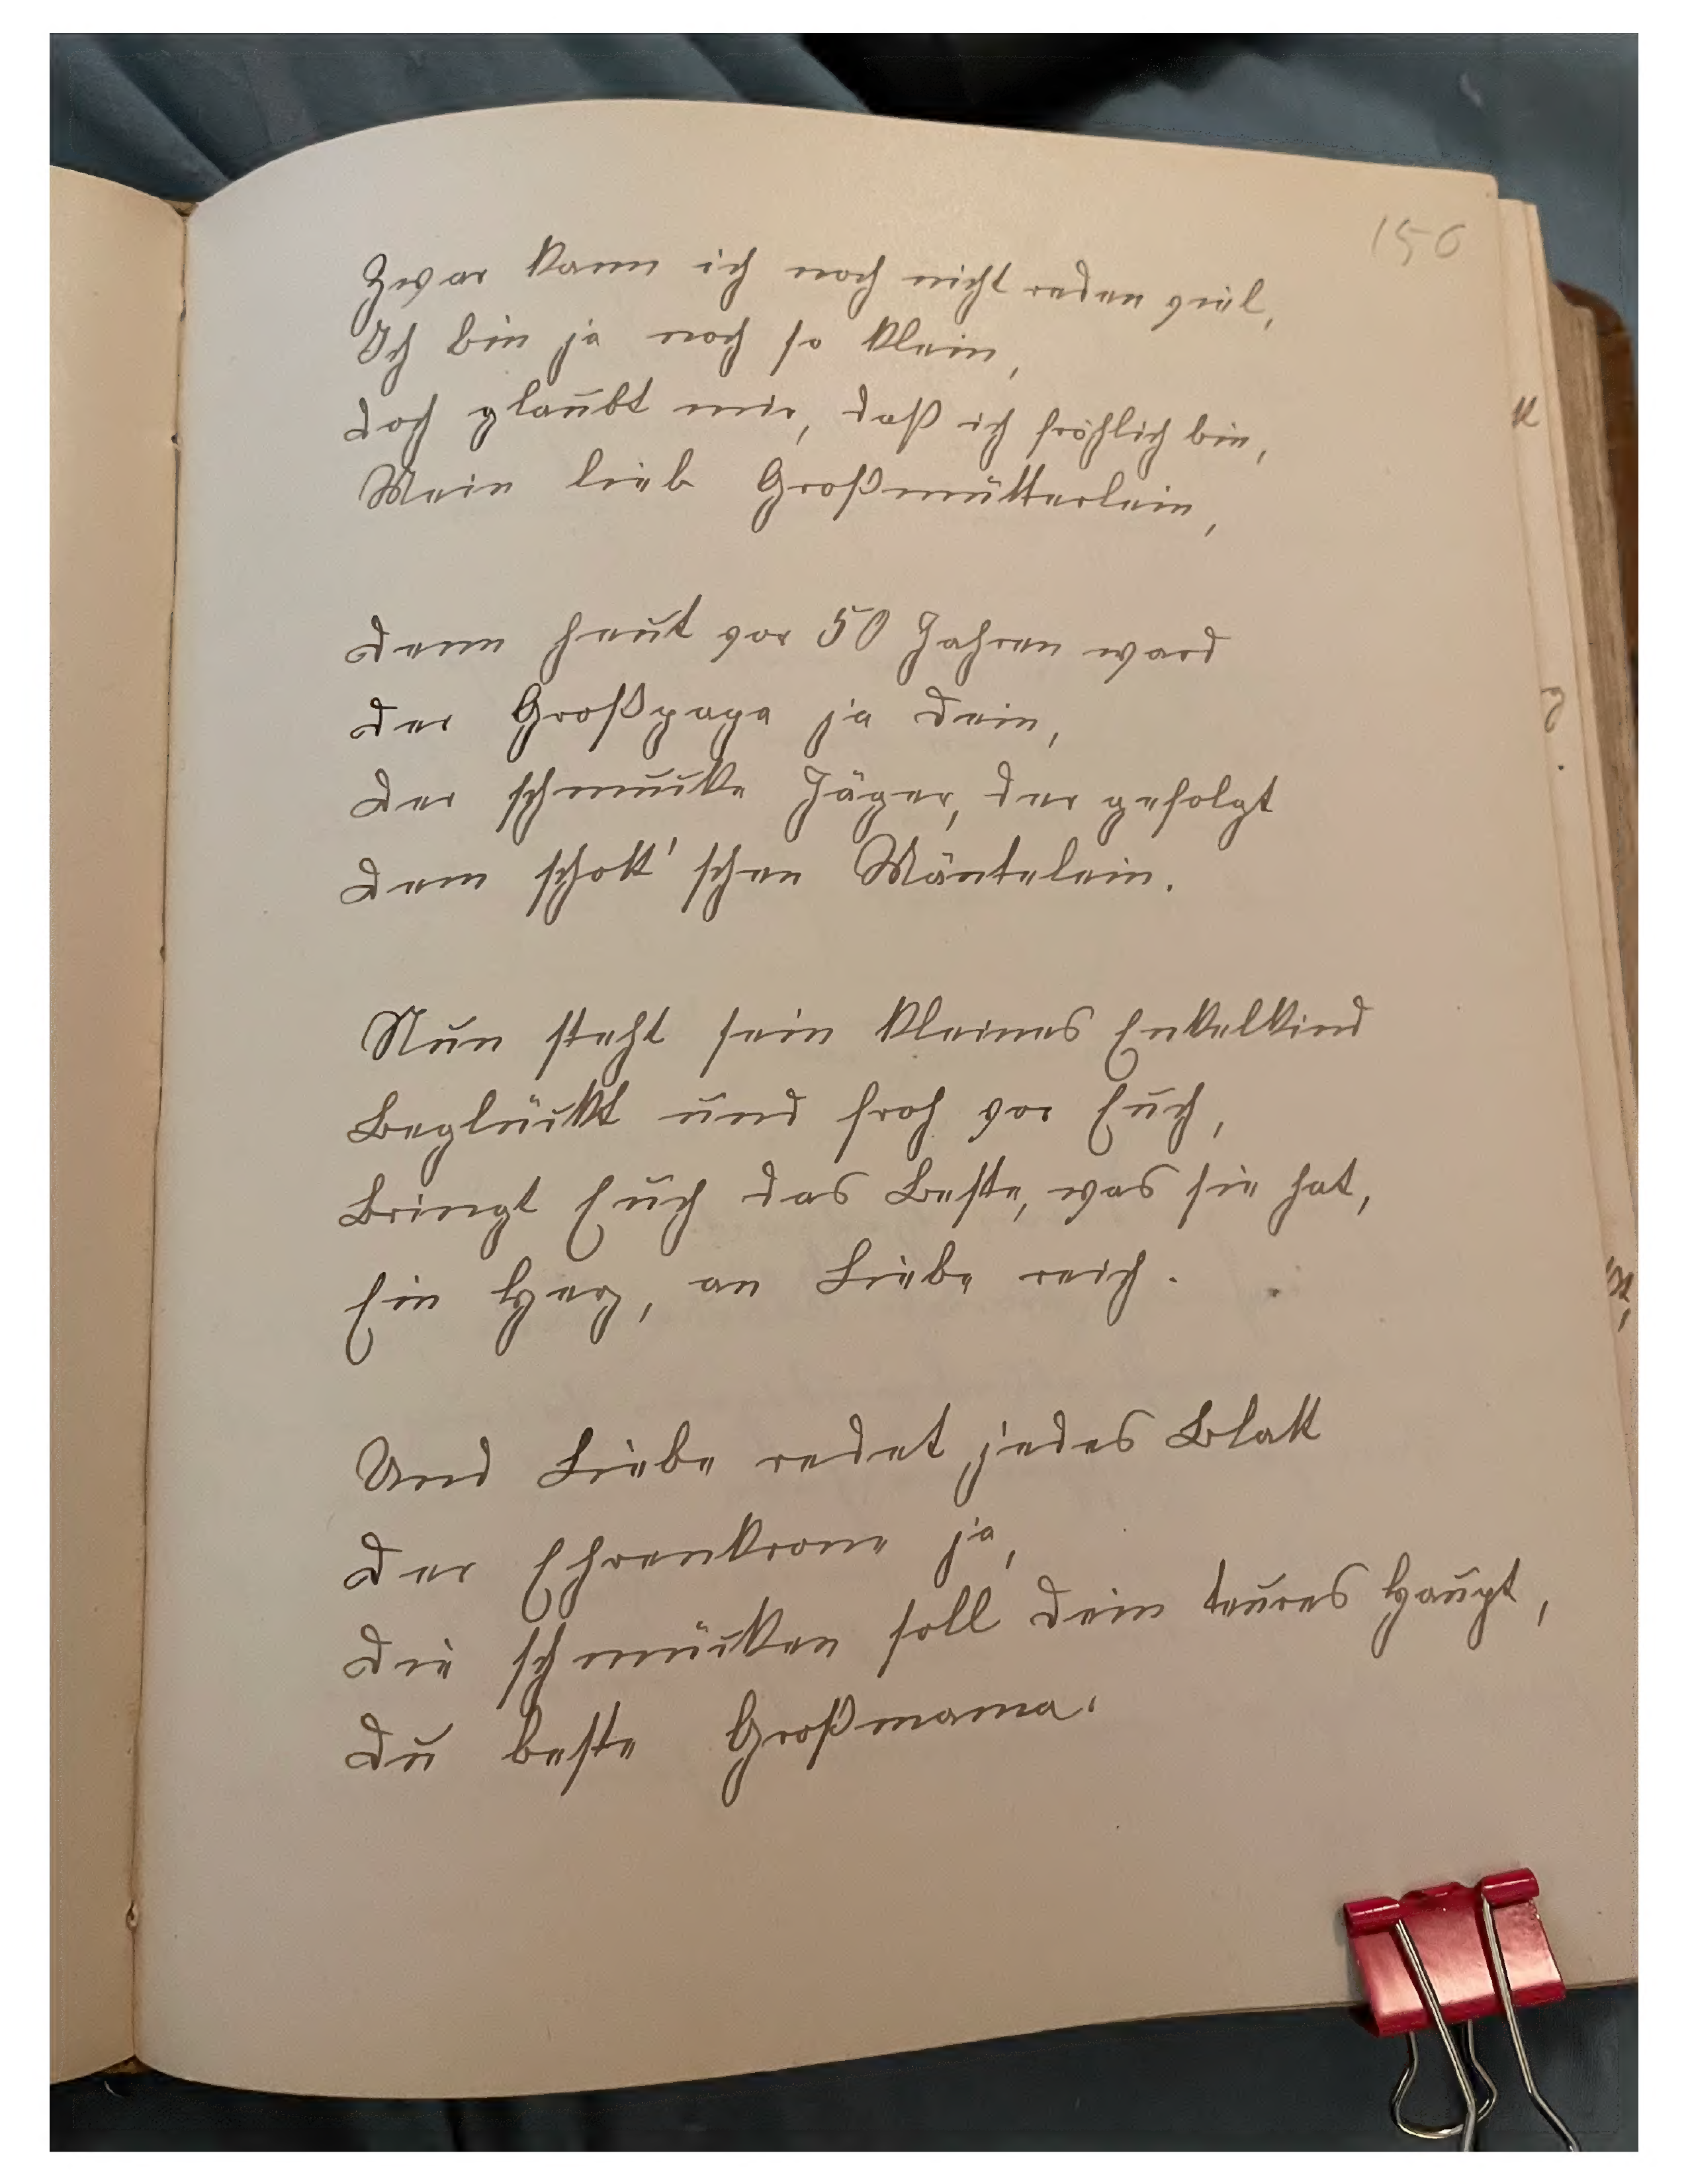 150
Zwar kann ich noch nicht reden viel,
Ich bin ja noch so klein,
Doch glaubt mir, daß ich fröhlich bin,
Mein lieb Großmütterlein,
Denn heut vor 50 Jahren ward
Der Großpapa ja Dein,
Der schmucke Jäger, der gefolgt
Dem schott'schen Mäntelein.
Nun steht sein kleines Enkelkind
Beglückt und froh vor Euch,
Bringt Euch das Beste, was sie hat,
Ein Herz, an Liebe reich.
Und Liebe redet jedes Blatt
Der Ehrenkrone ja,
Die schmücken soll Dein teures Haupt,
Du beste Großmama.